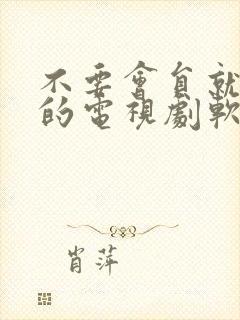 不要會員就
的電視劇軟
肖萍